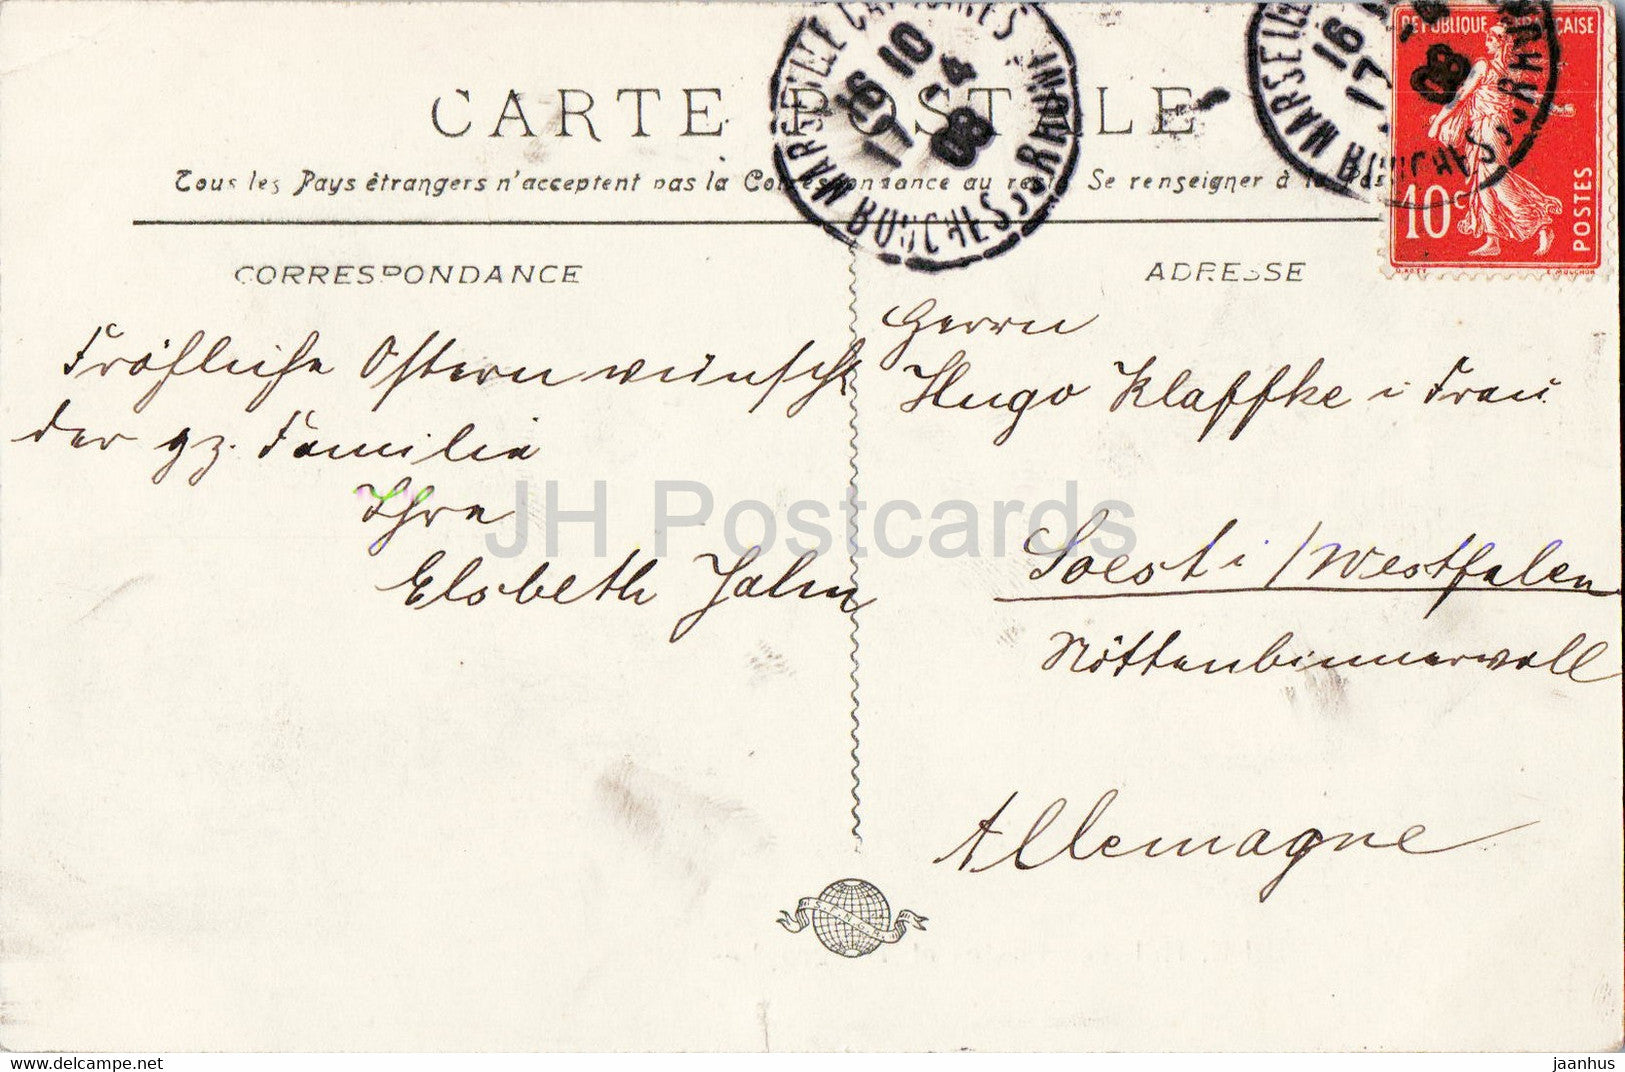 CARTE POSTALE
Tous les Pays étrangers n'acceptent pas la Correspondance au recto Se renseigner à la
MARSEILLE CAPUCINES
16 10
17 -4
08
BOUCHES DU RHONE
MARSEILLE
16
17
08
BOUCHES DU RHONE
REPUBLIQUE FRANÇAISE
10 c
POSTES
O. ROTY
E. MOUCHON
CORRESPONDANCE
ADRESSE
Fröhliche Ostern wünscht
der gz. Familie
Ihre
Elsbeth Jahn
Herrn
Hugo Klaffke i Frau
Soest i / Westfalen
Nöttenbinnerwall
Allemagne
JH Postcards
jaanhus